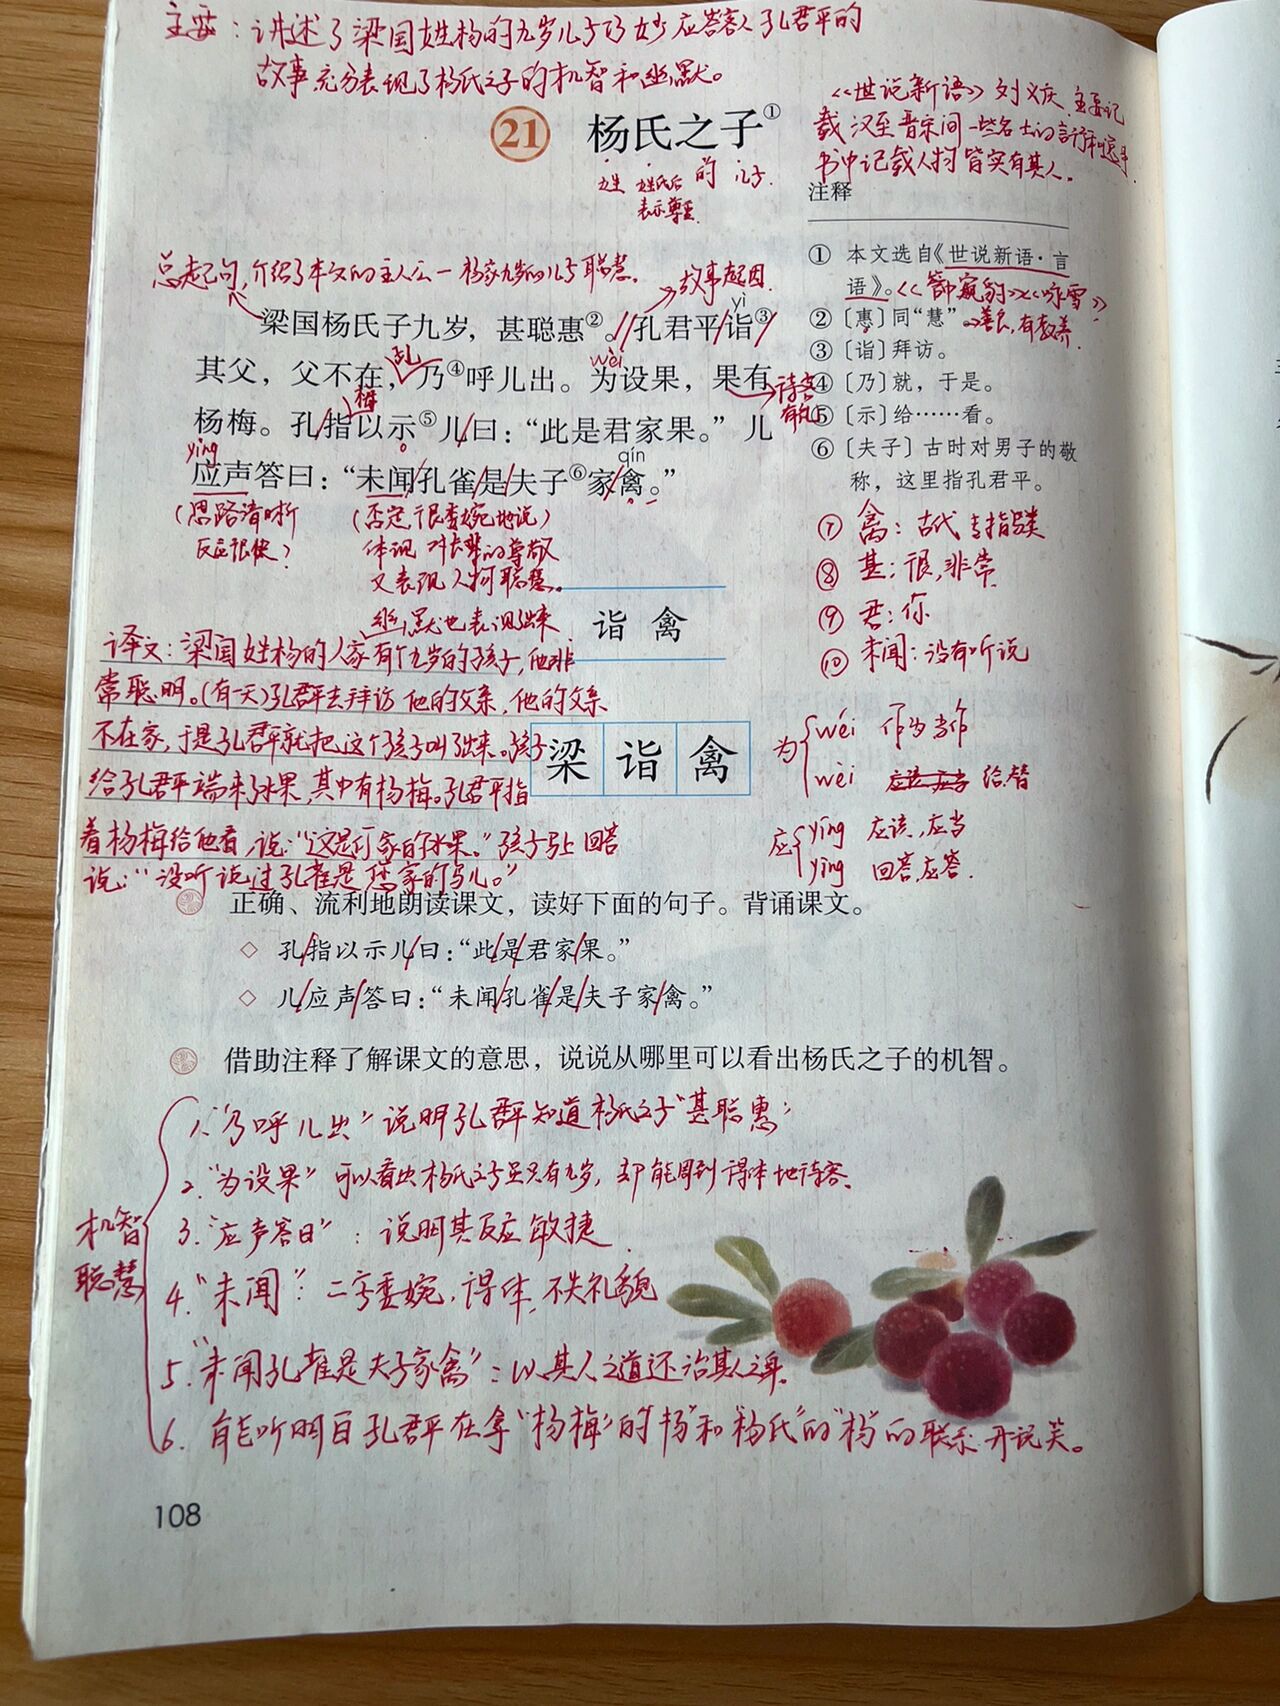 主要：讲述了梁国姓杨的九岁儿子巧妙应答客人孔君平的
故事，充分表现了杨氏之子的机智和幽默。
21 杨氏之子①
姓 姓氏后 的 儿子.
表示尊重
《世说新语》刘义庆.主要记
载汉至晋宋间一些名士的言行和逸事
书中记载人物皆实有其人。
注释
① 本文选自《世说新语·言
语》。《咏雪》
②〔惠〕同“慧”。善良,有教养
③〔诣〕拜访。
④〔乃〕就，于是。
⑤〔示〕给……看。
⑥〔夫子〕古时对男子的敬
称，这里指孔君平。
⑦ 禽：古代专指鸟类
⑧ 甚：很,非常
⑨ 君：你
⑩ 未闻：没有听说
总起句，介绍了本文的主人公—杨家九岁的儿子聪慧.
故事起因.
yì
梁国杨氏子九岁，甚聪惠②。//孔君平/诣③/
孔
wèi
其父，父不在，乃④呼儿出。为设果，果有
待客
有礼
梅
杨梅。孔/指以示⑤儿/曰：“此是君家果。”儿
yìng
qín
应声答曰：“未闻/孔雀/是/夫子⑥家/禽。”
(思路清晰
反应很快)
(否定,很委婉地说)
体现 对长辈的尊敬
又表现人物聪慧。
幽默也表现出来
诣 禽
译文：梁国姓杨的人家有个九岁的孩子，他非
常聪明。(有一天)孔君平去拜访他的父亲，他的父亲
不在家，于是孔君平就把这个孩子叫了出来。孩子
给孔君平端来了水果，其中有杨梅。孔君平指
着杨梅给他看，说：“这是你家的水果。”孩子马上回答
说：“没听说过孔雀是您家的鸟儿。”
梁 诣 禽
为 wéi 作为 当作
wèi 给.替
应 yīng 应该,应当
yìng 回答,应答.
正确、流利地朗读课文，读好下面的句子。背诵课文。
◇ 孔/指以示儿/曰：“此/是/君家/果。”
◇ 儿/应声/答曰：“未闻/孔雀/是/夫子家/禽。”
借助注释了解课文的意思，说说从哪里可以看出杨氏之子的机智。
机智
聪慧
1.“乃呼儿出”说明孔君平知道杨氏之子“甚聪惠”
2.“为设果”可以看出杨氏之子虽只有九岁，却能周到得体地待客.
3.“应声答曰”：说明其反应敏捷
4.“未闻”：二字委婉，得体,不失礼貌
5.“未闻孔雀是夫子家禽”：以其人之道还治其人之身.
6. 有能听明白孔君平在拿“杨梅”的“杨”和“杨氏”的“杨”的联系开玩笑。
108